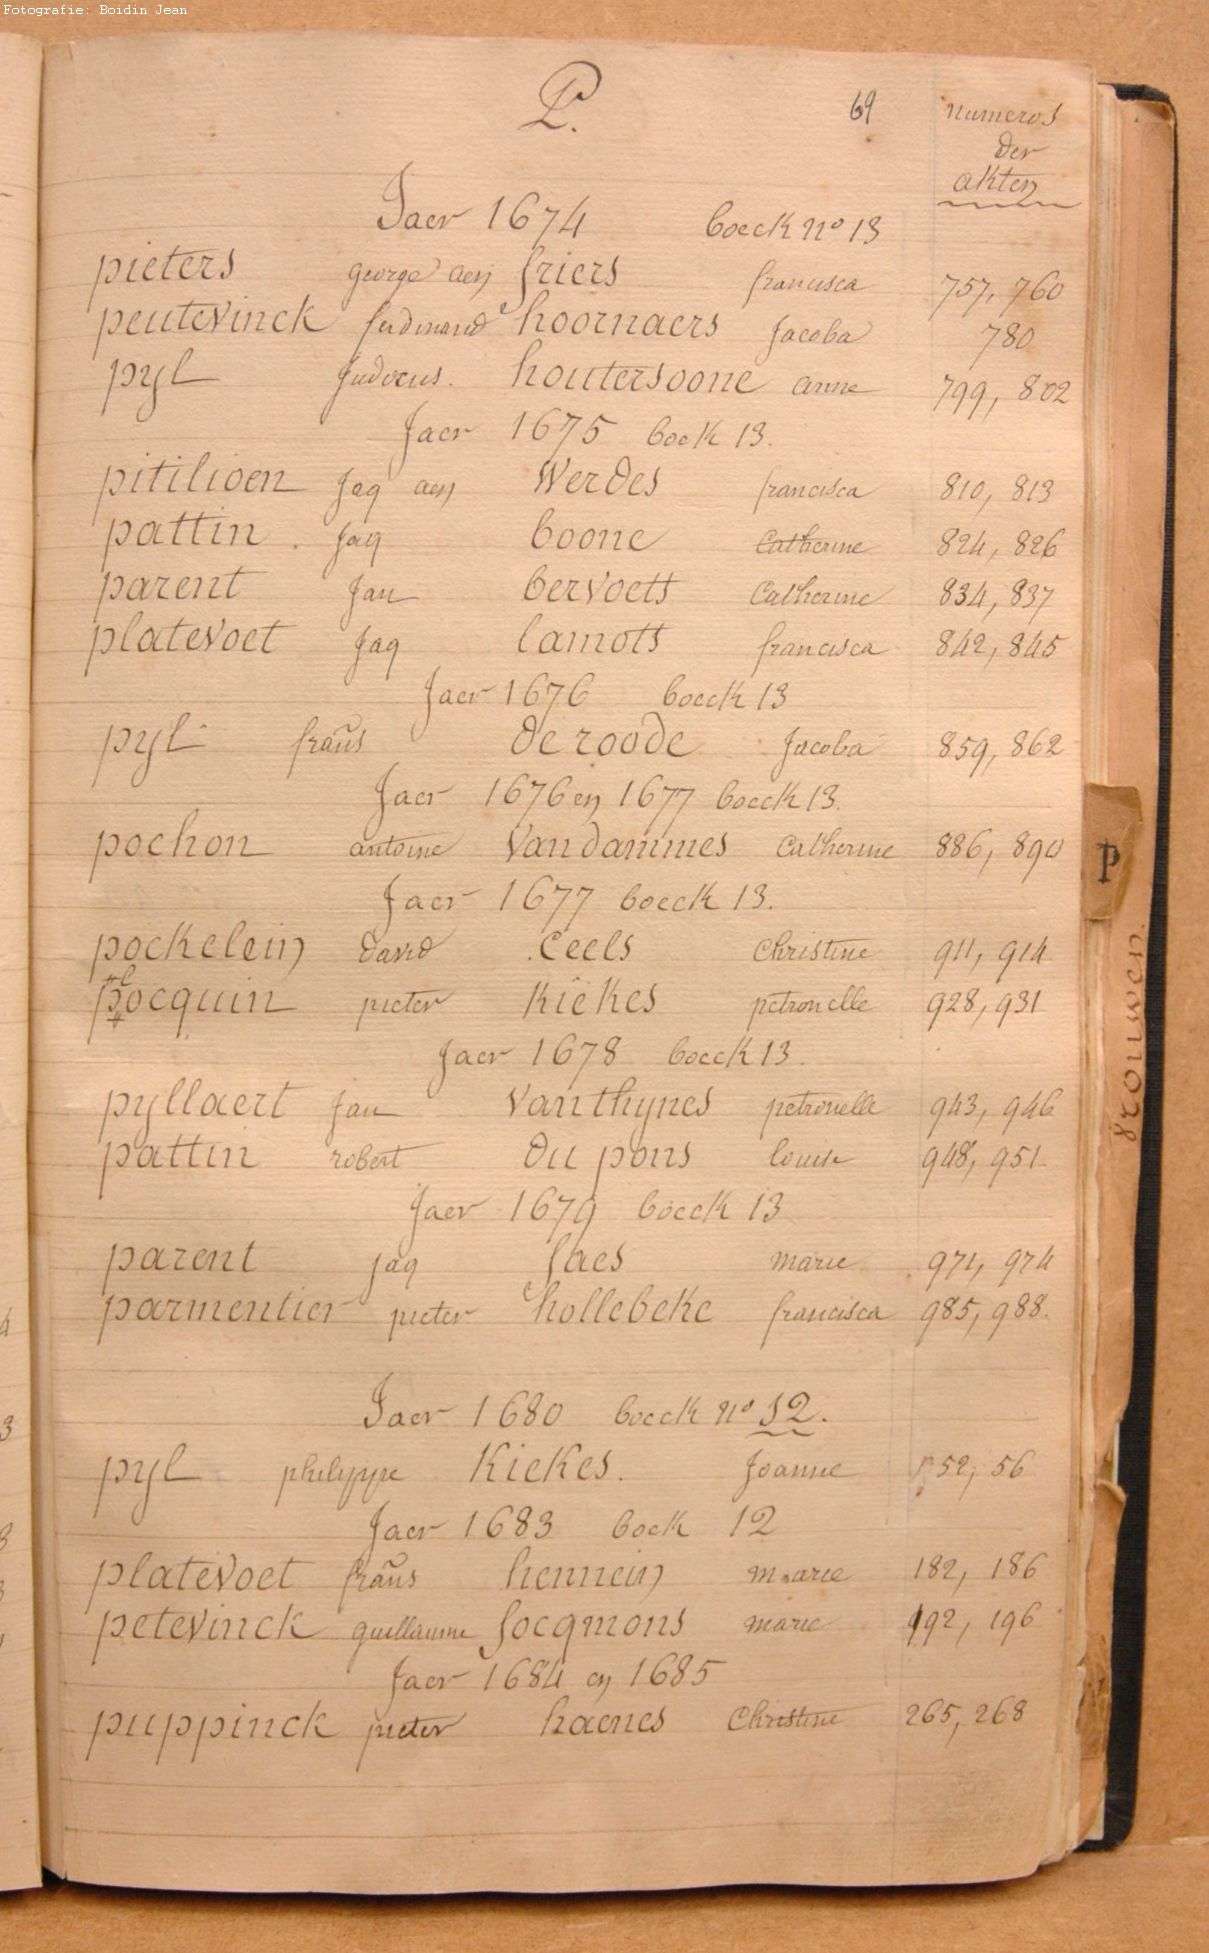 Fotografie: Boidin Jean
P.
69
numeros
der
akten
Jaer 1674 boeck no 13
pieters george aen friers francisca 757, 760
peutevinck ferdinand hoornaers Jacoba 780
pyl Judocus. houtersoone anne 799, 802
Jaer 1675 boek 13.
pitilioen Jaq aen Werdes francisca 810, 813
pattin . Jaq boone Catherine 824, 826
parent Jan bervoets Catherine 834, 837
platevoet Jaq lamots francisca 842, 845
Jaer 1676 boeck 13
pyl frañs de roode Jacoba 859, 862
Jaer 1676 en 1677 boeck 13.
pochon antoine Vandammes Catherine 886, 890
Jaer 1677 boeck 13.
pockelein david Ceels Christine 911, 914
pocquin pieter Kiekes petronelle 928, 931
Jaer 1678 boeck 13.
pyllaert Jan Vanthynes petronelle 943, 946
pattin robert du pons louise 948, 951
Jaer 1679 boeck 13
parent jaq faes marie 971, 974
parmentier pieter hollebeke francisca 985, 988.
Jaer 1680 boeck no 12.
pyl philippe Kiekes. Joanne 52, 56
Jaer 1683 boek 12
platevoet frañs hennein marie 182, 186
petevinck guillaume Socqmons marie 192, 196
Jaer 1684 en 1685
puppinck pieter haenes Christine 265, 268
P
vrouwen